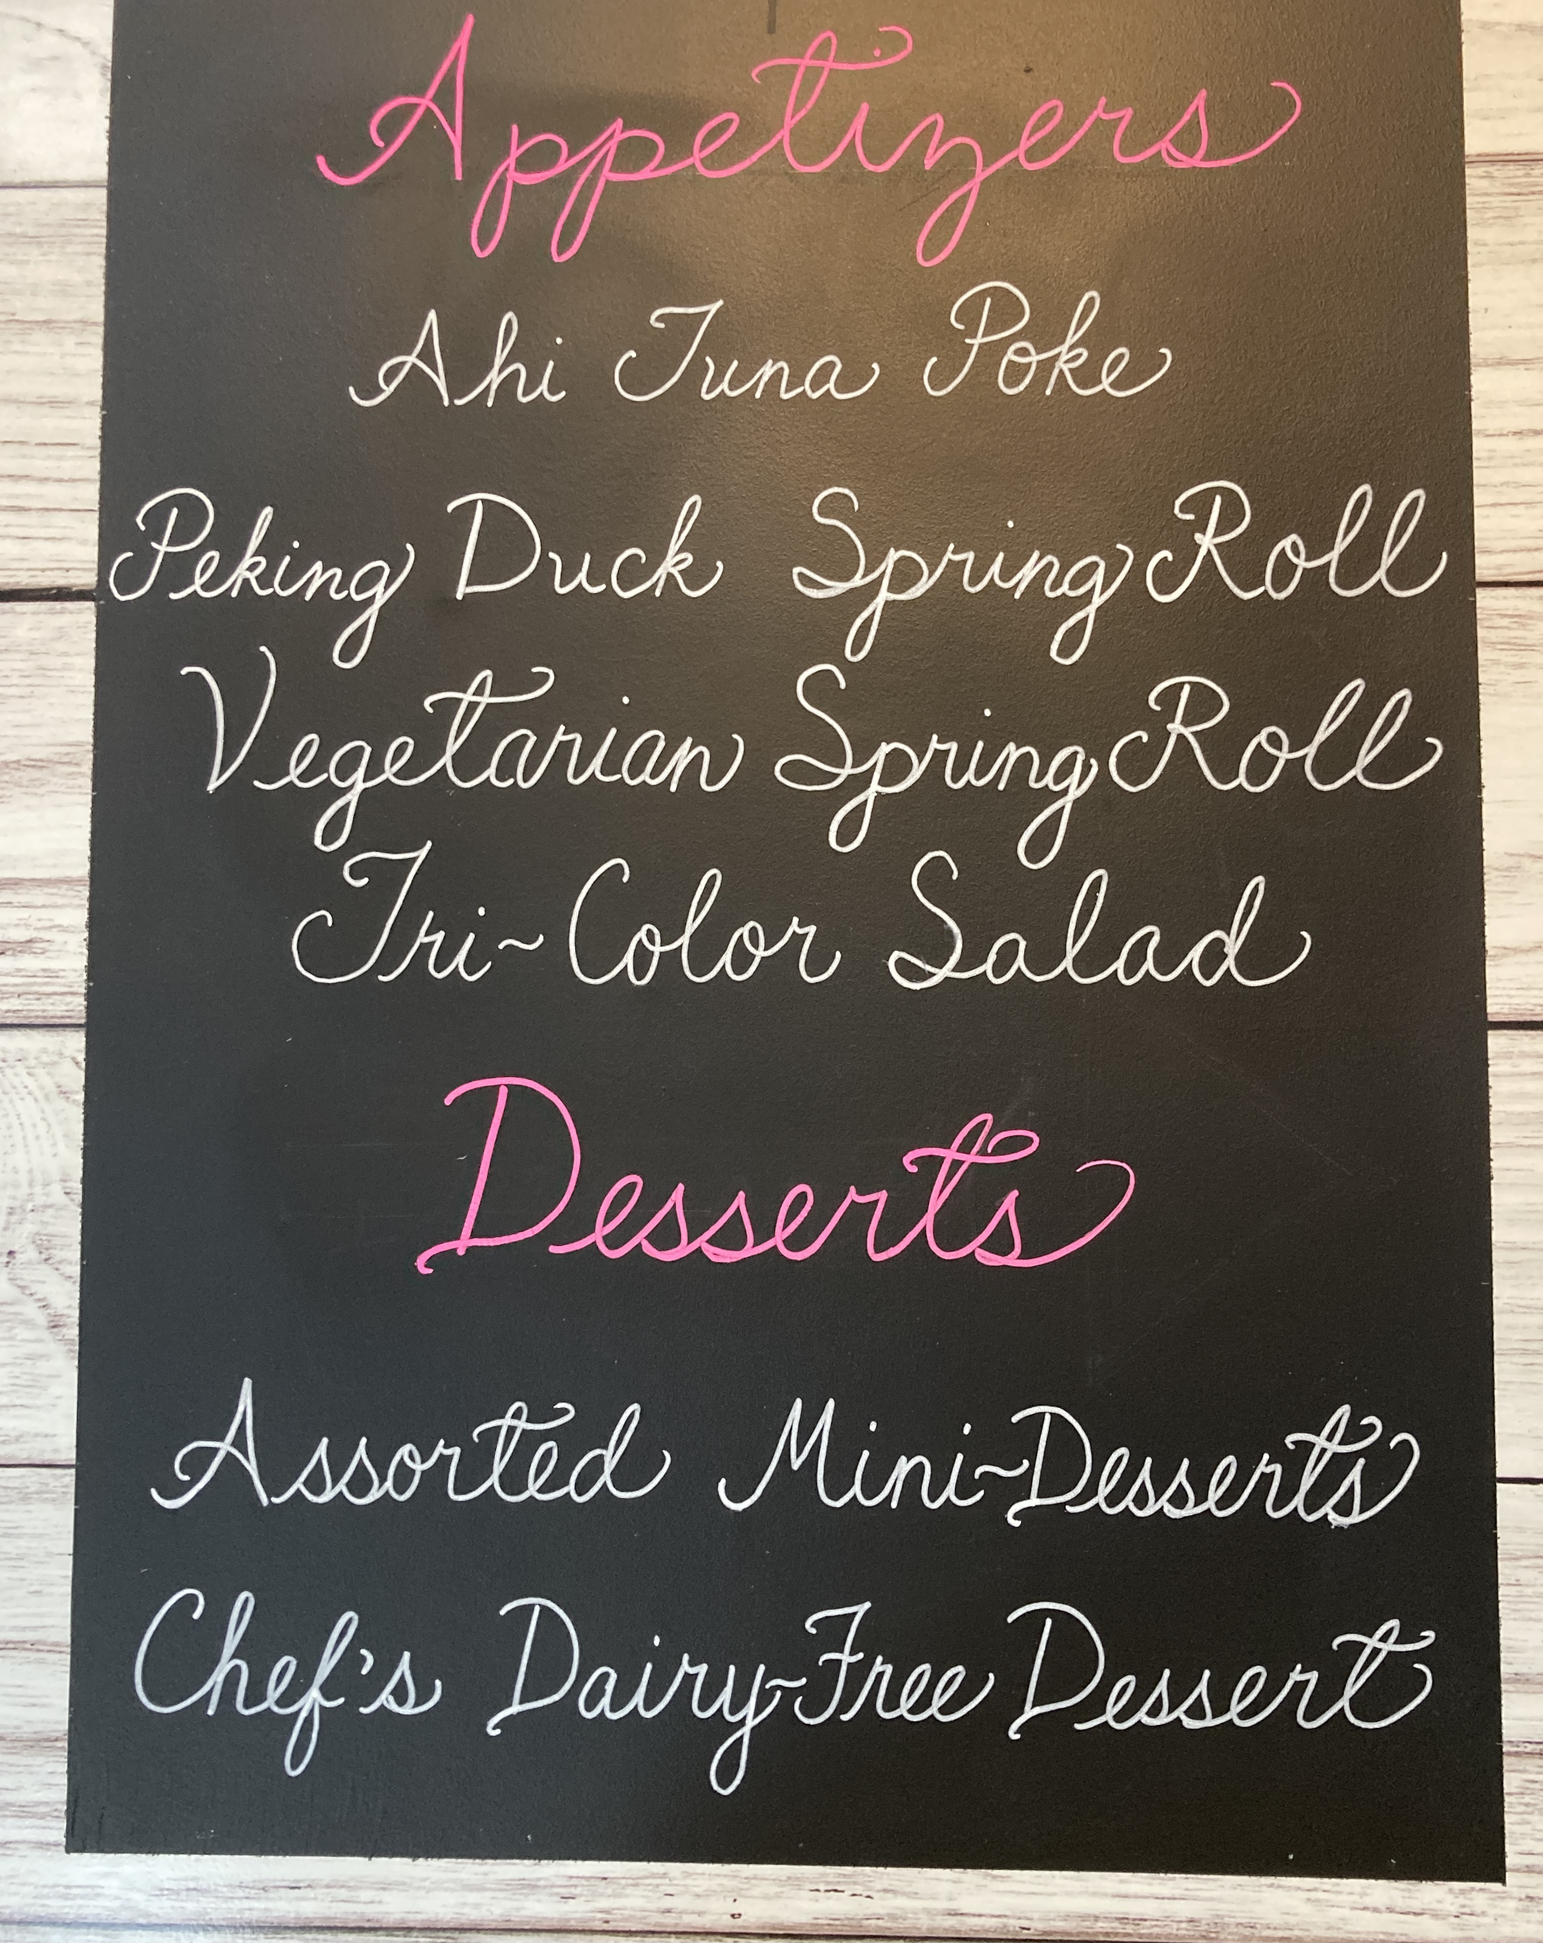 Appetizers
Ahi Tuna Poke
Peking Duck Spring Roll
Vegetarian Spring Roll
Tri-Color Salad
Desserts
Assorted Mini-Desserts
Chef's Dairy-Free Dessert